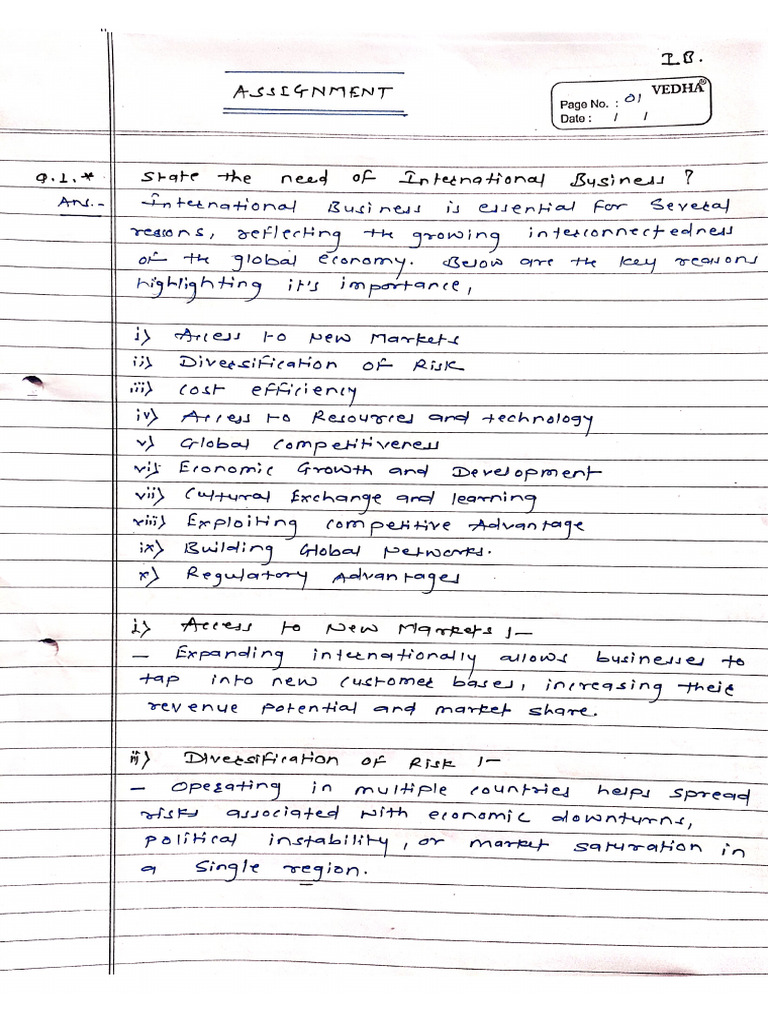 I B.
ASSIGNMENT
VEDHA®
Page No. : 01
Date : / /
Q.1.* State the need of International Business ?
Ans.- International Business is essential for several
reasons, reflecting the growing interconnectedness
of the global economy. Below are the key reasons
highlighting it's importance,
i) Access to New Markets
ii) Diversification of Risk
iii) Cost efficiency
iv) Access to Resources and technology
v) Global Competitiveness
vi) Economic Growth and Development
vii) Cultural Exchange and learning
viii) Exploiting Competitive Advantage
ix) Building Global Networks.
x) Regulatory Advantages
i) Access to New Markets :-
- Expanding internationally allows businesses to
tap into new customer bases, increasing their
revenue potential and market share.
ii) Diversification of Risk :-
- Operating in multiple countries helps spread
risks associated with economic downturns,
political instability, or market saturation in
a single region.